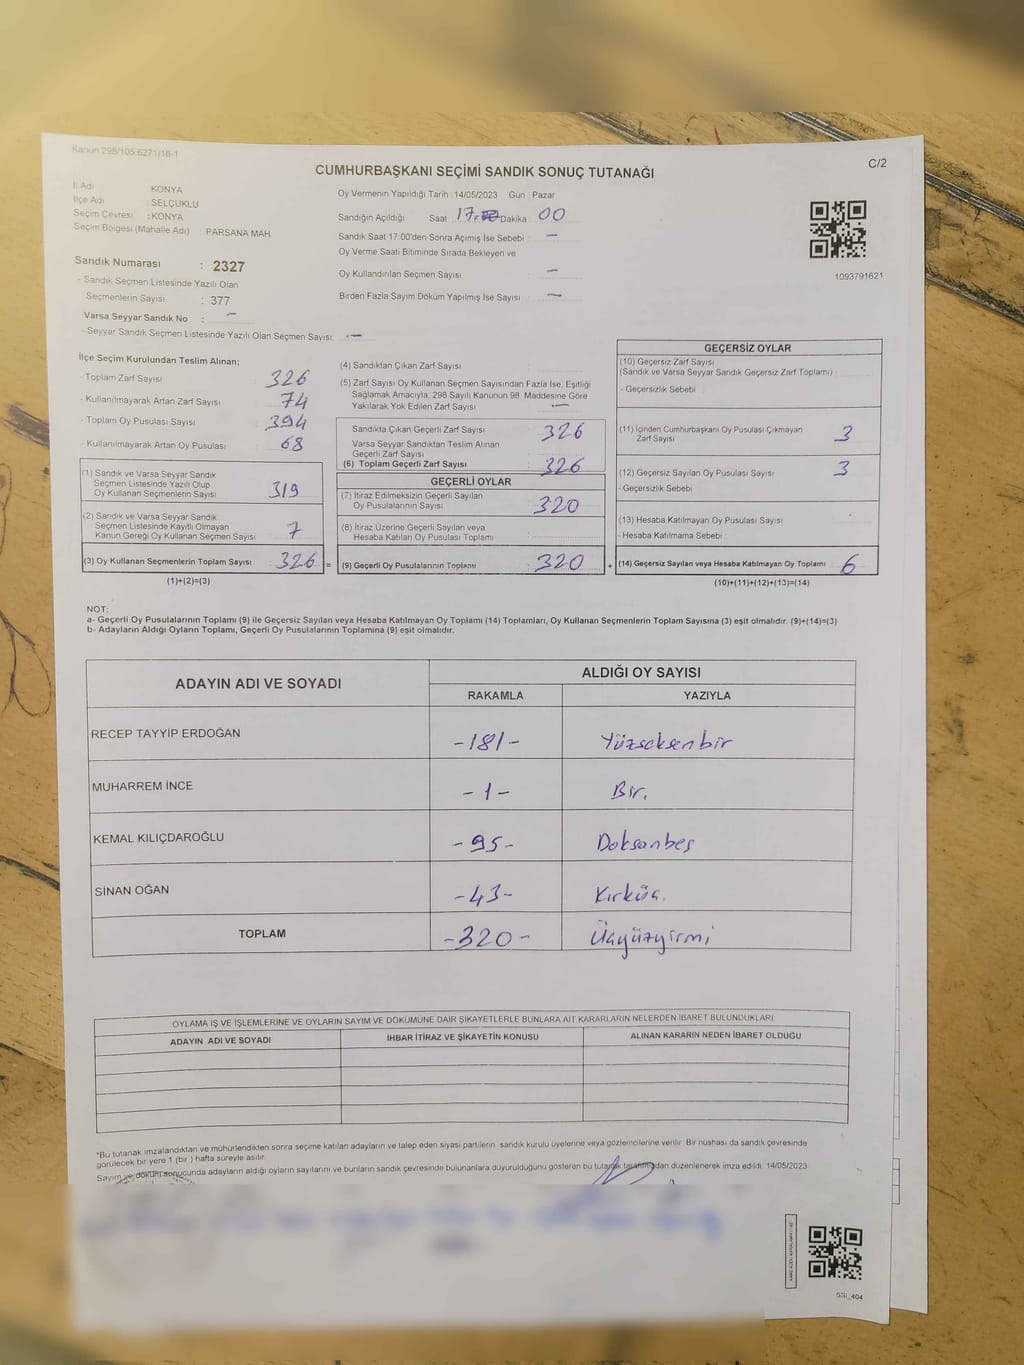 Kanun:298/105,6271/18-1
C/2
CUMHURBAŞKANI SEÇİMİ SANDIK SONUÇ TUTANAĞI
İl Adı : KONYA
İlçe Adı : SELÇUKLU
Seçim Çevresi : KONYA
Seçim Bölgesi (Mahalle Adı) : PARSANA MAH.
Sandık Numarası : 2327
- Sandık Seçmen Listesinde Yazılı Olan
Seçmenlerin Sayısı : 377
Varsa Seyyar Sandık No : -
- Seyyar Sandık Seçmen Listesinde Yazılı Olan Seçmen Sayısı: -
Oy Vermenin Yapıldığı Tarih :14/05/2023 Gün : Pazar
Sandığın Açıldığı Saat 17 Dakika : 00
Sandık Saat 17:00'den Sonra Açımış İse Sebebi : -
Oy Verme Saati Bitiminde Sırada Bekleyen ve
Oy Kullandırılan Seçmen Sayısı : -
Birden Fazla Sayım Döküm Yapılmış İse Sayısı : -
1093791621
İlçe Seçim Kurulundan Teslim Alınan;
- Toplam Zarf Sayısı 326
- Kullanılmayarak Artan Zarf Sayısı 74
- Toplam Oy Pusulası Sayısı 394
- Kullanılmayarak Artan Oy Pusulası 68
(1) Sandık ve Varsa Seyyar Sandık
Seçmen Listesinde Yazılı Olup
Oy Kullanan Seçmenlerin Sayısı 319
(2) Sandık ve Varsa Seyyar Sandık
Seçmen Listesinde Kayıtlı Olmayan
Kanun Gereği Oy Kullanan Seçmen Sayısı 7
(3) Oy Kullanan Seçmenlerin Toplam Sayısı 326 =
(1)+(2)=(3)
(4) Sandıktan Çıkan Zarf Sayısı
(5) Zarf Sayısı Oy Kullanan Seçmen Sayısından Fazla İse, Eşitliği
Sağlamak Amacıyla; 298 Sayılı Kanunun 98. Maddesine Göre
Yakılarak Yok Edilen Zarf Sayısı : -
Sandıkta Çıkan Geçerli Zarf Sayısı 326
Varsa Seyyar Sandıktan Teslim Alınan
Geçerli Zarf Sayısı
(6) Toplam Geçerli Zarf Sayısı 326
GEÇERLİ OYLAR
(7) İtiraz Edilmeksizin Geçerli Sayılan
Oy Pusulalarının Sayısı 320
(8) İtiraz Üzerine Geçerli Sayılan veya
Hesaba Katılan Oy Pusulası Toplamı
(9) Geçerli Oy Pusulalarının Toplamı 320 +
GEÇERSİZ OYLAR
(10) Geçersiz Zarf Sayısı
(Sandık ve Varsa Seyyar Sandık Geçersiz Zarf Toplamı) :
- Geçersizlik Sebebi
(11) İçinden Cumhurbaşkanı Oy Pusulası Çıkmayan
Zarf Sayısı 3
(12) Geçersiz Sayılan Oy Pusulası Sayısı 3
- Geçersizlik Sebebi
(13) Hesaba Katılmayan Oy Pusulası Sayısı
- Hesaba Katılmama Sebebi :
(14) Geçersiz Sayılan veya Hesaba Katılmayan Oy Toplamı 6
(10)+(11)+(12)+(13)=(14)
NOT:
a- Geçerli Oy Pusulalarının Toplamı (9) ile Geçersiz Sayılan veya Hesaba Katılmayan Oy Toplamı (14) Toplamları, Oy Kullanan Seçmenlerin Toplam Sayısına (3) eşit olmalıdır. (9)+(14)=(3)
b- Adayların Aldığı Oyların Toplamı, Geçerli Oy Pusulalarının Toplamına (9) eşit olmalıdır.
ADAYIN ADI VE SOYADI ALDIĞI OY SAYISI
RAKAMLA YAZIYLA
RECEP TAYYİP ERDOĞAN -181- Yüzseksenbir
MUHARREM İNCE -1- Bir.
KEMAL KILIÇDAROĞLU -95- Doksanbeş
SİNAN OĞAN -43- Kırküç.
TOPLAM -320- Üçyüzyirmi
OYLAMA İŞ VE İŞLEMLERİNE VE OYLARIN SAYIM VE DÖKÜMÜNE DAİR ŞİKAYETLERLE BUNLARA AİT KARARLARIN NELERDEN İBARET BULUNDUKLARI
ADAYIN ADI VE SOYADI İHBAR İTİRAZ VE ŞİKAYETİN KONUSU ALINAN KARARIN NEDEN İBARET OLDUĞU
*Bu tutanak imzalandıktan ve mühürlendikten sonra seçime katılan adayların ve talep eden siyasi partilerin sandık kurulu üyelerine veya gözlemcilerine verilir. Bir nüshası da sandık çevresinde
görülecek bir yere 1 (bir ) hafta süreyle asılır.
Sayım ve döküm sonucunda adayların aldığı oyların sayılarını ve bunların sandık çevresinde bulunanlara duyurulduğunu gösteren bu tutanak tarafımızdan düzenlenerek imza edildi. 14/05/2023